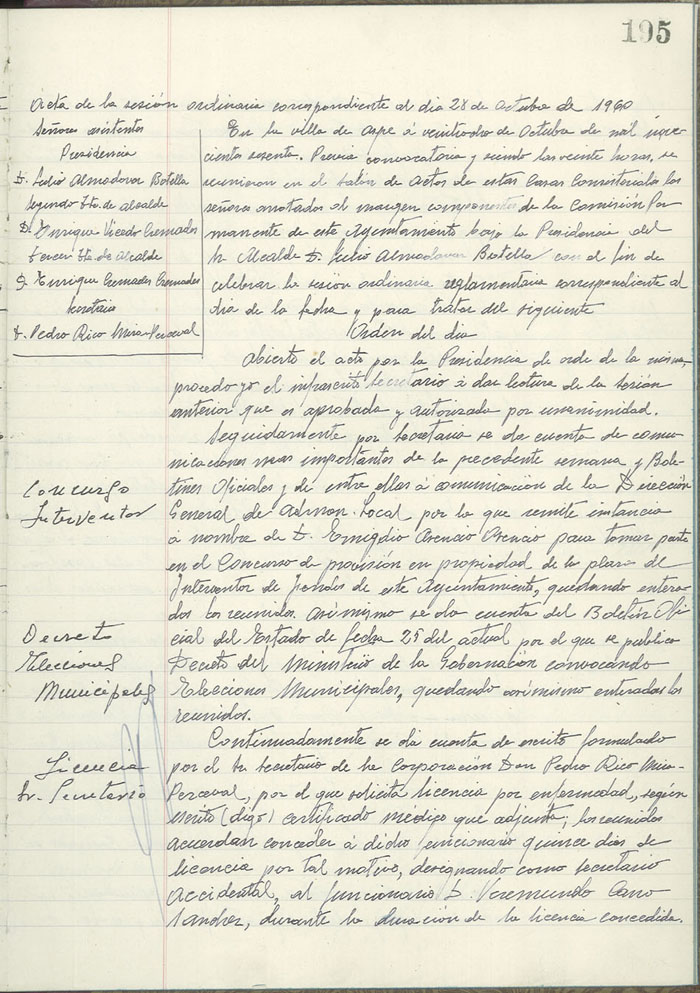 195
Acta de la sesión ordinaria correspondiente al dia 28 de Octubre de 1960
Señores asistentes
Presidencia
D. Julio Almodovar Botella
Segundo Tte. de alcalde
D. Enrique Vicedo Cremades
Tercer Tte. de Alcalde
D. Enrique Cremades Cremades
Secretario
D. Pedro Rico Mira-Perceval
En la villa de Aspe á veintiocho de Octubre de mil nove-
cientos sesenta. Previa convocatoria y siendo las veinte horas, se
reunieron en el salón de actos de estas Casas Consistoriales los
señores anotados al margen componentes de la Comisión Per-
manente de este Ayuntamiento bajo la Presidencia del
Sr Alcalde D. Julio Almodovar Botella con el fin de
celebrar la sesión ordinaria reglamentaria correspondiente al
dia de la fecha y para tratar del siguiente
Orden del dia
Abierto el acto por la Presidencia de orde de la misma,
procedo yo el infrascrito Secretario á dar lectura de la sesión
anterior que es aprobada y autorizada por unanimidad.
Seguidamente por Secretaria se da cuenta de comu-
nicaciones mas importantes de la precedente semana y Bole-
tines Oficiales y de entre ellas á comunicación de la Dirección
General de Admon. Local por la que remite instancia
á nombre de D. Emigdio Asencio Asencio para tomar parte
en el Concurso de provisión en propiedad de la plaza de
Interventor de fondos de este Ayuntamiento, quedando entera-
dos los reunidos. Asimismo se da cuenta del Boletín Ofi-
cial del Estado de fecha 25 del actual por el que se publico
Decreto del Ministerio de la Gobernación convocando
Elecciones Municipales, quedando asimismo enterados los
reunidos.
Concurso
Interventor
Decreto
Elecciones
Municipales
Continuadamente se da cuenta de escrito formulado
por el Sr Secretario de la Corporación Don Pedro Rico Mira-
Perceval, por el que solicita licencia por enfermedad, según
escrito (digo) certificado médico que adjunta; los reunidos
acuerdan conceder á dicho funcionario quince dias de
licencia por tal motivo, designando como Secretario
Accidental, al funcionario D. Veremundo Cano
Sanchez, durante la duración de la licencia concedida.
Licencia
Sr. Secretario